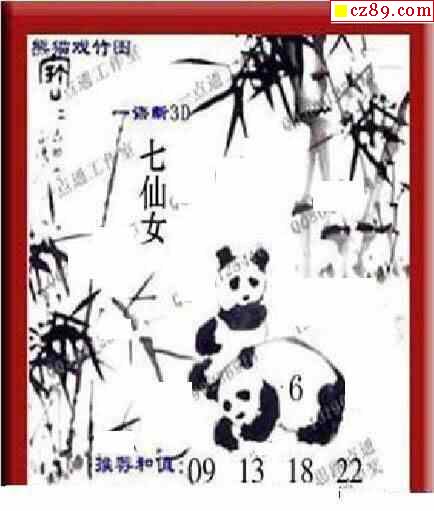 cz89.com
熊猫戏竹图
一语断3D
七仙女
6
推荐和值:09 13 18 22